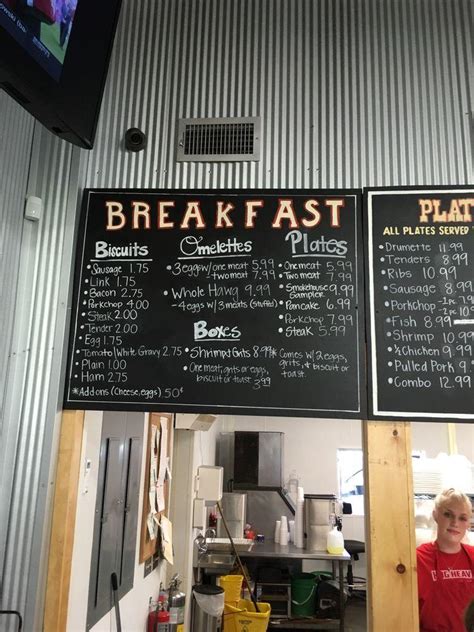 BREAKFAST
Biscuits
• Sausage 1.75
• Link 1.75
• Bacon 2.75
• Porkchop 4.00
• Steak 2.00
• Tender 2.00
• Egg 1.75
• Tomato/White Gravy 2.75
• Plain 1.00
• Ham 2.75
*Addons (Cheese, eggs) 50¢
Omelettes
• 3 eggs w/one meat 5.99
two meat 7.99
• Whole Hawg 9.99
- 4 eggs w/3 meats (stuffed)
Boxes
• Shrimp Grits 8.99
• One meat, grits or eggs,
biscuit or toast 3.99
Plates
• One meat 5.99
• Two meat 7.99
• Smokehouse
Sampler 9.99
• Pancake 6.99
• Porkchop 7.99
• Steak 5.99
* Comes w/2 eggs,
grits, & biscuit or
toast.
PLAT
ALL PLATES SERVED
• Drumette 11.99
• Tenders 8.99
• Ribs 10.99
• Sausage 8.99
• Porkchop
• Fish 8.99
• Shrimp 8.99
• ½ Chicken 9.99
• Pulled Pork 9.99
• Combo 12.99